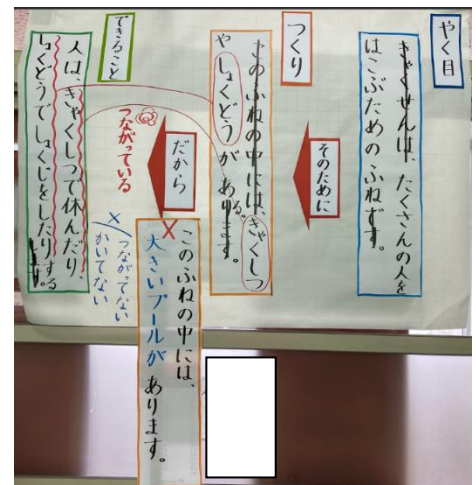 やく目
きゃくせんは、たくさんの人を
はこぶためのふねです。
そのために
つくり
このふねの中には、きゃくしつ
や しょくどう が あります。
る。
だから
できること
人は、きゃくしつで休んだり、
しょくどうでしょくじをしたりします。
する
つながっている
このふねの中には、
大きいプールが あります。
×
×
つながってない
かいてない